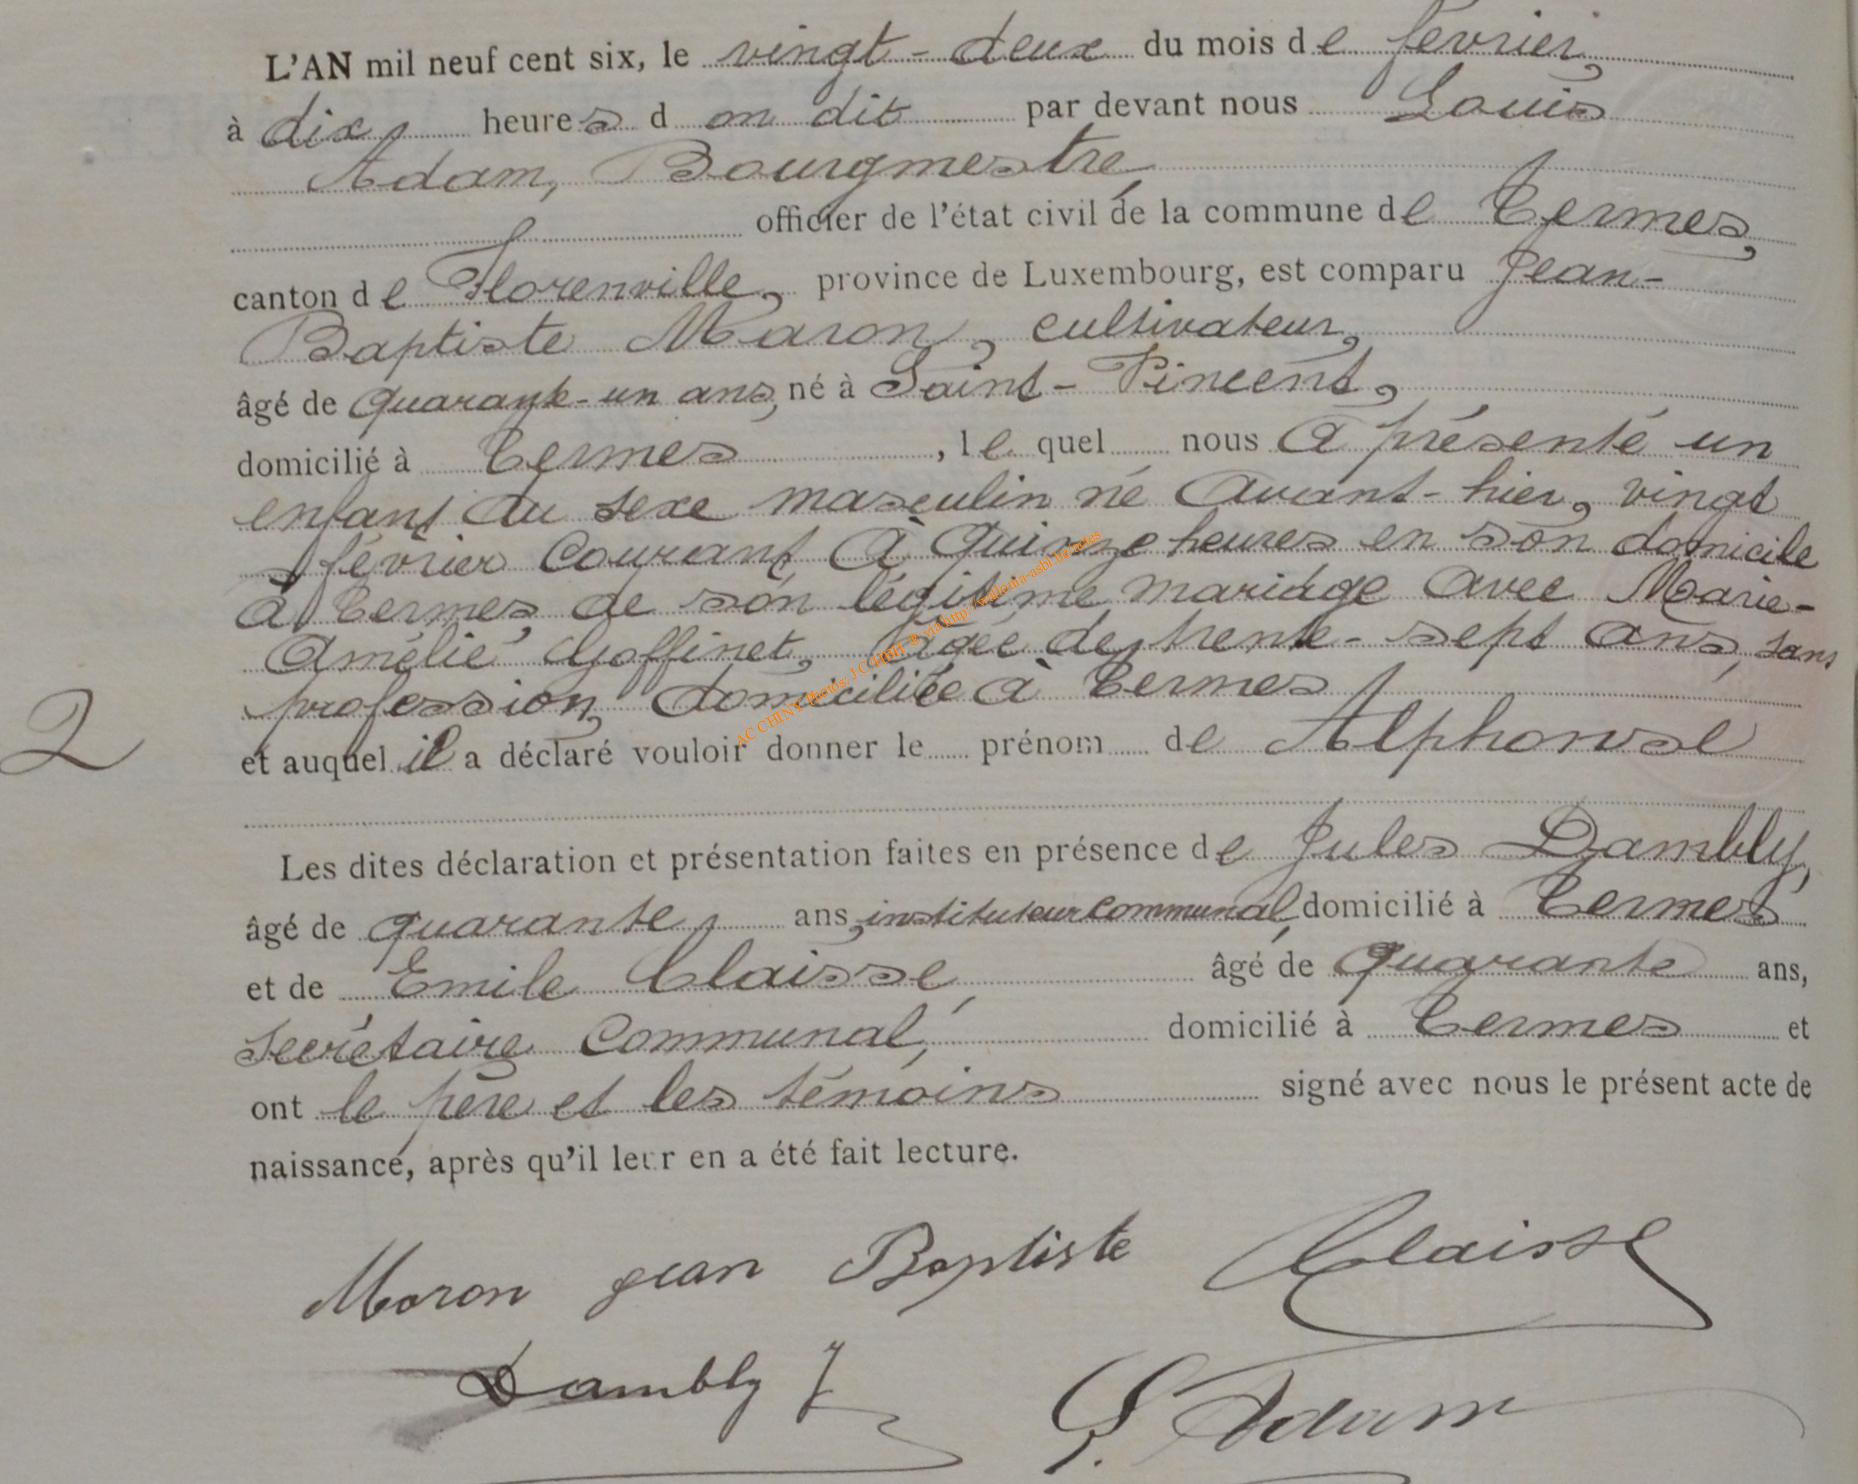 L'AN mil neuf cent six, le vingt-deux du mois de février,
à dix, heures d on dit par devant nous Louis
Adam, Bourgmestre,
officier de l'état civil de la commune de Termes,
canton de Florenville, province de Luxembourg, est comparu Jean-
Baptiste Maron, cultivateur,
âgé de quarante-un ans, né à Saint-Vincent,
domicilié à Termes, lequel nous a présenté un
enfant du sexe masculin né avant-hier, vingt
février courant à quinze heures en son domicile
à Termes, de son légitime mariage avec Marie-
Amélie Goffinet, âgée de trente-sept ans, sans
profession, domiciliée à Termes
2
et auquel il a déclaré vouloir donner le prénom de Alphonse
Les dites déclaration et présentation faites en présence de Jules Dambly,
âgé de quarante, ans, instituteur communal, domicilié à Termes
et de Emile Claisse, âgé de quarante ans,
secrétaire communal, domicilié à Termes et
ont le père et les témoins signé avec nous le présent acte de
naissance, après qu'il leur en a été fait lecture.
Maron jean Baptiste Claisse
Dambly J L. Adam